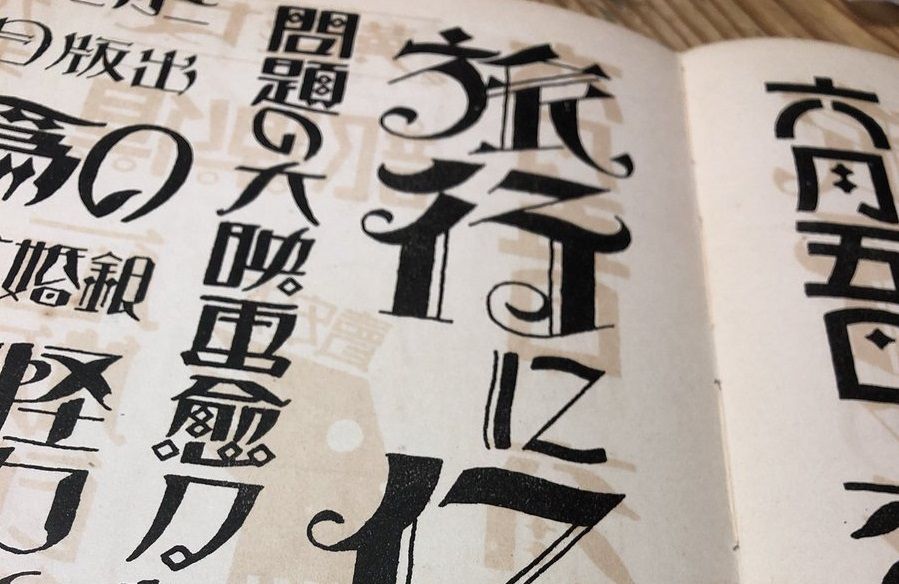 六月五日
旅行に行
問題の大映画愈々
出版
の為
銀婚
怪